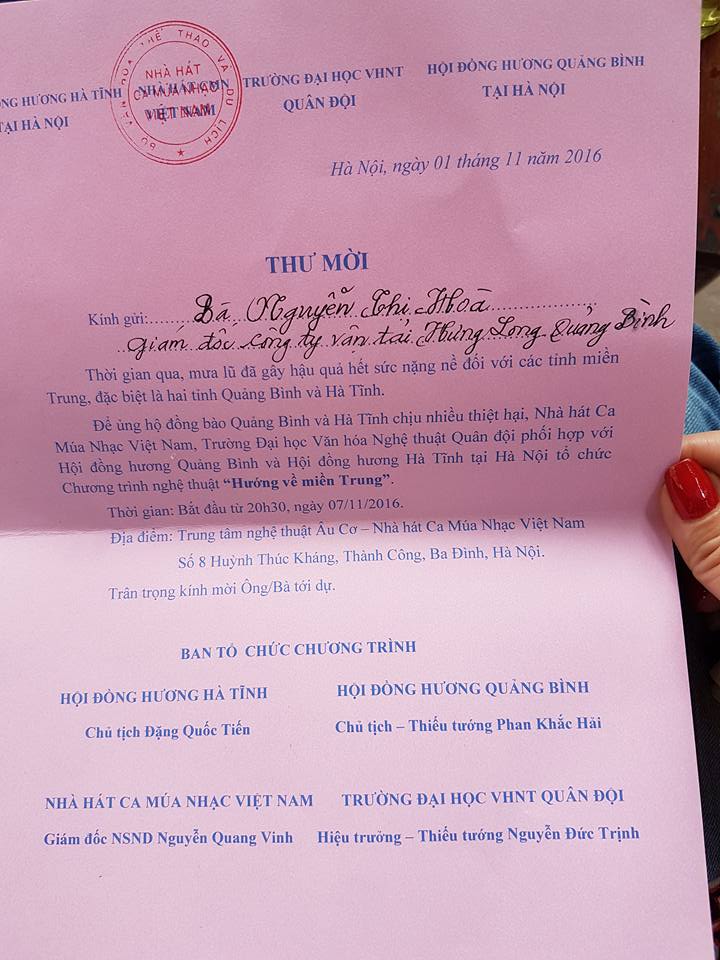 NG HƯƠNG HÀ TĨNH
TẠI HÀ NỘI
NHÀ HÁT CMN
VIỆT NAM
BỘ VĂN HÓA THỂ THAO VÀ DU LỊCH
NHÀ HÁT
CA MÚA NHẠC
VIỆT NAM
TRƯỜNG ĐẠI HỌC VHNT
QUÂN ĐỘI
HỘI ĐỒNG HƯƠNG QUẢNG BÌNH
TẠI HÀ NỘI
Hà Nội, ngày 01 tháng 11 năm 2016
THƯ MỜI
Kính gửi: Bà Nguyễn Thị Hoà
Giám đốc công ty vận tải Hưng Long Quảng Bình
Thời gian qua, mưa lũ đã gây hậu quả hết sức nặng nề đối với các tỉnh miền
Trung, đặc biệt là hai tỉnh Quảng Bình và Hà Tĩnh.
Để ủng hộ đồng bào Quảng Bình và Hà Tĩnh chịu nhiều thiệt hại, Nhà hát Ca
Múa Nhạc Việt Nam, Trường Đại học Văn hóa Nghệ thuật Quân đội phối hợp với
Hội đồng hương Quảng Bình và Hội đồng hương Hà Tĩnh tại Hà Nội tổ chức
Chương trình nghệ thuật “Hướng về miền Trung”.
Thời gian: Bắt đầu từ 20h30, ngày 07/11/2016.
Địa điểm: Trung tâm nghệ thuật Âu Cơ – Nhà hát Ca Múa Nhạc Việt Nam
Số 8 Huỳnh Thúc Kháng, Thành Công, Ba Đình, Hà Nội.
Trân trọng kính mời Ông/Bà tới dự.
BAN TỔ CHỨC CHƯƠNG TRÌNH
HỘI ĐỒNG HƯƠNG HÀ TĨNH
Chủ tịch Đặng Quốc Tiến
HỘI ĐỒNG HƯƠNG QUẢNG BÌNH
Chủ tịch – Thiếu tướng Phan Khắc Hải
NHÀ HÁT CA MÚA NHẠC VIỆT NAM
Giám đốc NSND Nguyễn Quang Vinh
TRƯỜNG ĐẠI HỌC VHNT QUÂN ĐỘI
Hiệu trưởng – Thiếu tướng Nguyễn Đức Trịnh